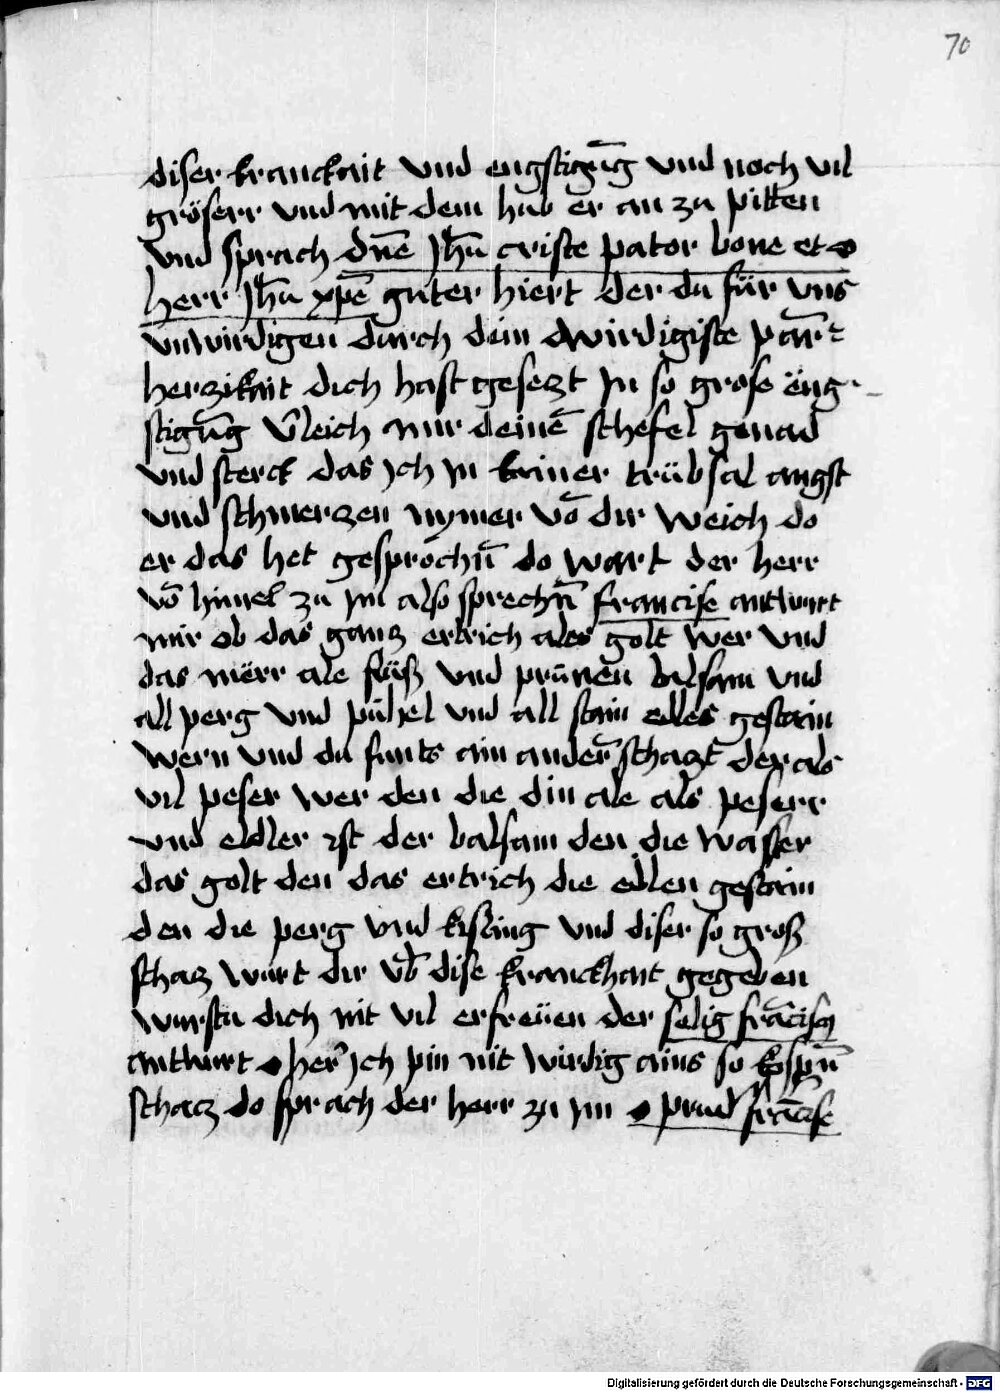 70
diser kranckait vnd engstigūg vnd noch vil
gröserr vnd mit dem hub er an zu pitten
vnd sprach dn̄e Jhū criste pator bone et o
herr Jhū xpē guter hiert der du für vns
vnwirdigen durch dein dwirdigiste parm̄
herzikait dich hast gesezt Jn so grose ëng
stigūg v̄leich mir deinē schefel genad
vnd sterck das Jch Jn kainer trübsal angst
vnd schmerzen nymer vō dir weich do
er das het gesprochn̄ do wart der herr
vō himel zu Jm also sprechn̄ francise antwurt
mir ob das ganz ertrich ales golt wer vnd
das mërr ale flüß vnd prūnen balsam vnd
all perg vnd pühel vnd all stain edles gestain
wern vnd du funts ain anderr̄ schazt der als
vil peser wer den die din ale als peserr
vnd eldler ist der balsam den die wasser
das golt den das ertrich die edlen gestain
den die perg vnd kisling vnd diser so groß
schaz wurt dir vb̄ dise kranckhait gegeben
wurstu dich nit vil erfreüen der selig frācisc9
antwurt o herr̄ Jch pin nit wirdig ains so kospn̄
schacz do sprach der herr zu Jm o prud̄ frācise
Digitalisierung gefördert durch die Deutsche Forschungsgemeinschaft - DFG